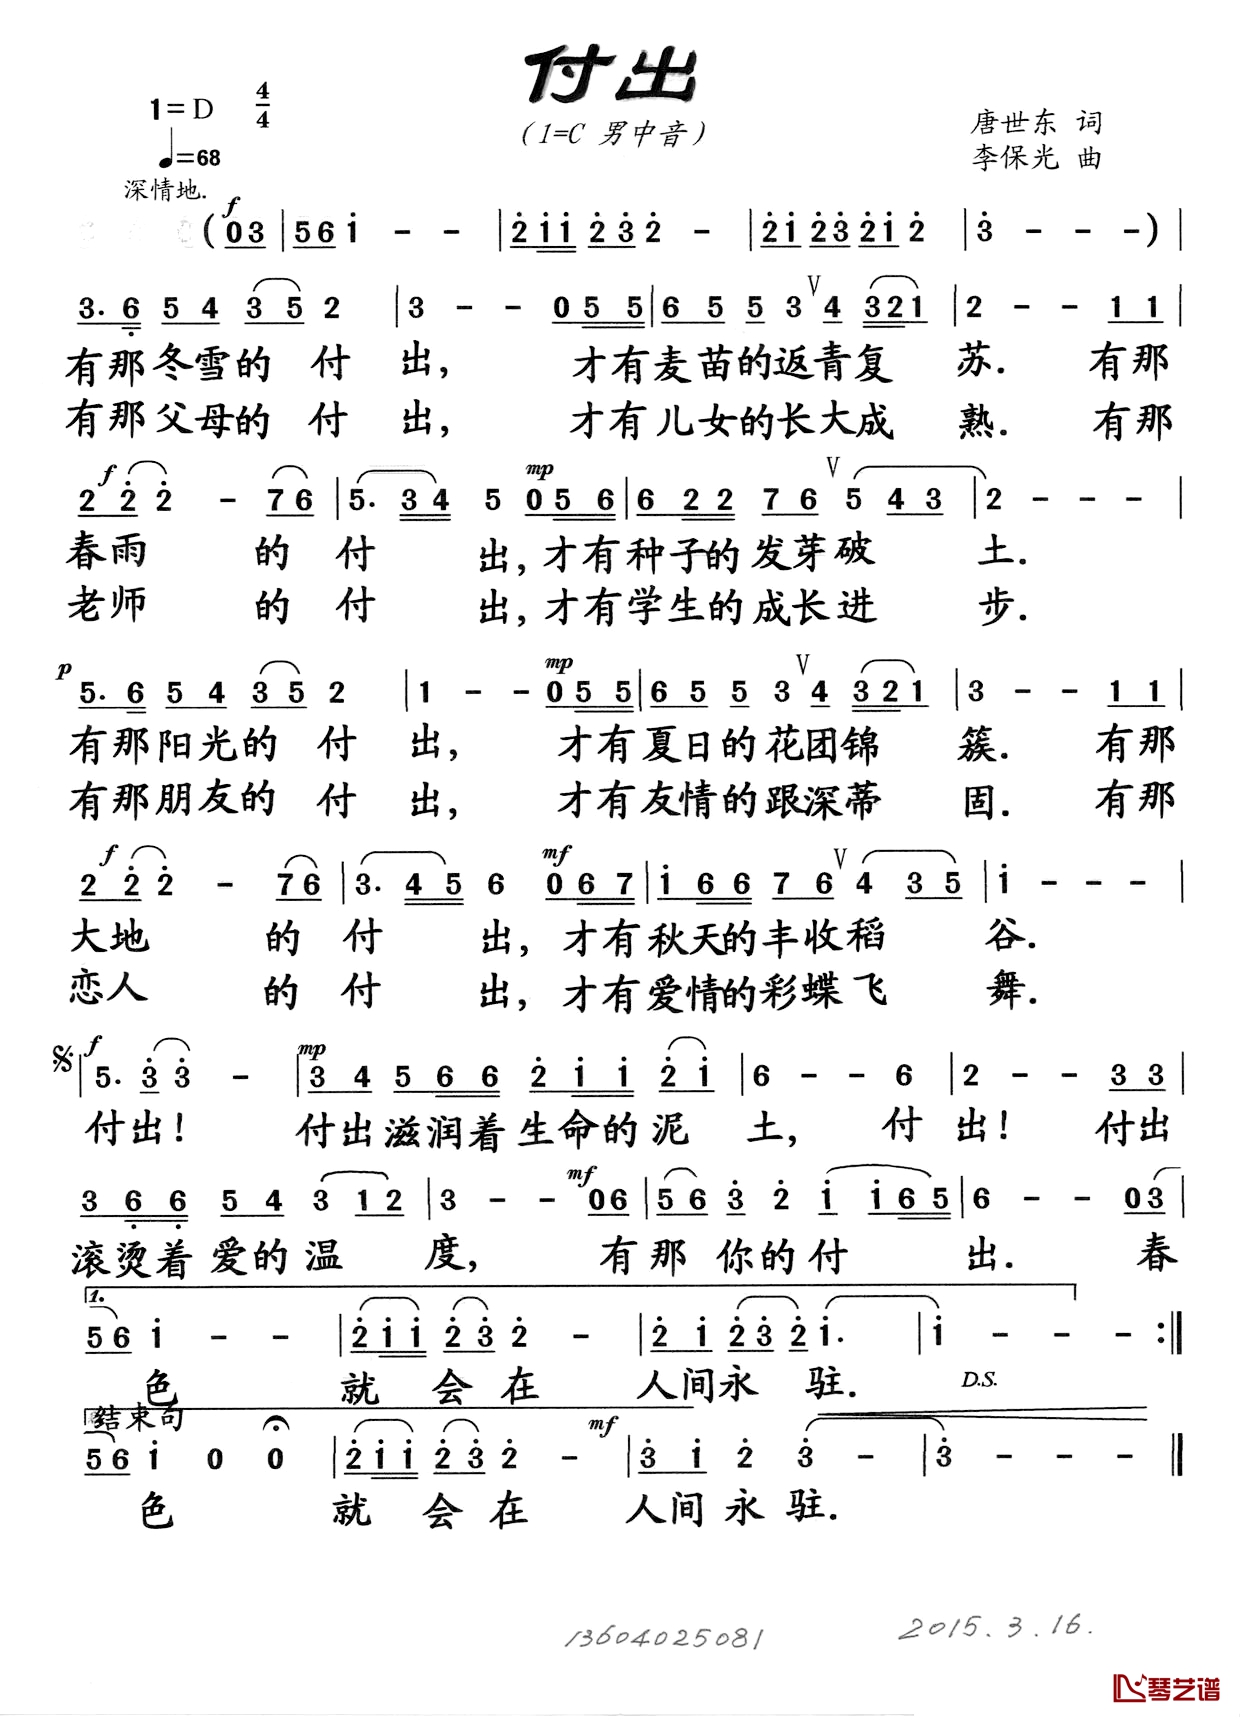 付出
1=D 4/4
（1=C 男中音）
唐世东 词
♩=68
李保光 曲
深情地.
f
(0 3 | 5 6 i - - | 2 i i 2 3 2 - | 2 i 2 3 2 i 2 | 3 - - -) |
3. 6 5 4 3 5 2 | 3 - - 0 5 5 | 6 5 5 3 V 4 3 2 1 | 2 - - 1 1 |
有那冬雪的 付 出, 才有麦苗的返青复 苏. 有那
有那父母的 付 出, 才有儿女的长大成 熟. 有那
f mp
2 2 2 - 7 6 | 5. 3 4 5 0 5 6 | 6 2 2 7 6 V 5 4 3 | 2 - - - |
春雨 的 付 出, 才有种子的发芽破 土.
老师 的 付 出, 才有学生的成长进 步.
p mp
5. 6 5 4 3 5 2 | 1 - - 0 5 5 | 6 5 5 3 V 4 3 2 1 | 3 - - 1 1 |
有那阳光的 付 出, 才有夏日的花团锦 簇. 有那
有那朋友的 付 出, 才有友情的跟深蒂 固. 有那
f mf
2 2 2 - 7 6 | 3. 4 5 6 0 6 7 | i 6 6 7 6 V 4 3 5 | i - - - |
大地 的 付 出, 才有秋天的丰收稻 谷.
恋人 的 付 出, 才有爱情的彩蝶飞 舞.
f mp
5. 3 3 - | 3 4 5 6 6 2 i i 2 i | 6 - - 6 | 2 - - 3 3 |
付出! 付出滋润着生命的泥 土, 付 出! 付出
mf
3 6 6 5 4 3 1 2 | 3 - - 0 6 | 5 6 3 2 i i 6 5 | 6 - - 0 3 |
滚烫着爱的温 度, 有那 你的付 出. 春
1.
5 6 i - - | 2 i i 2 3 2 - | 2 i 2 3 2 i. | i - - - :||
色 就 会在 人间永 驻. D.S.
结束句
mf
5 6 i 0 0 | 2 i i 2 3 2 - | 3 i 2 3 - | 3 - - - ||
色 就 会在 人间永驻.
13604025081
2015.3.16.
琴艺谱